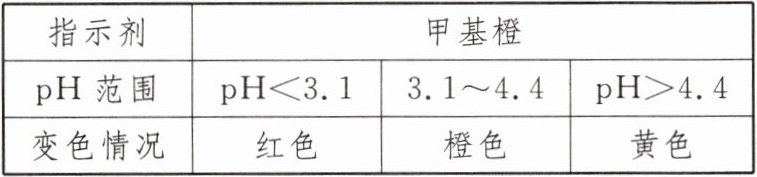 指示剂 甲基橙
pH 范围 pH<3.1 3.1～4.4 pH>4.4
变色情况 红色 橙色 黄色